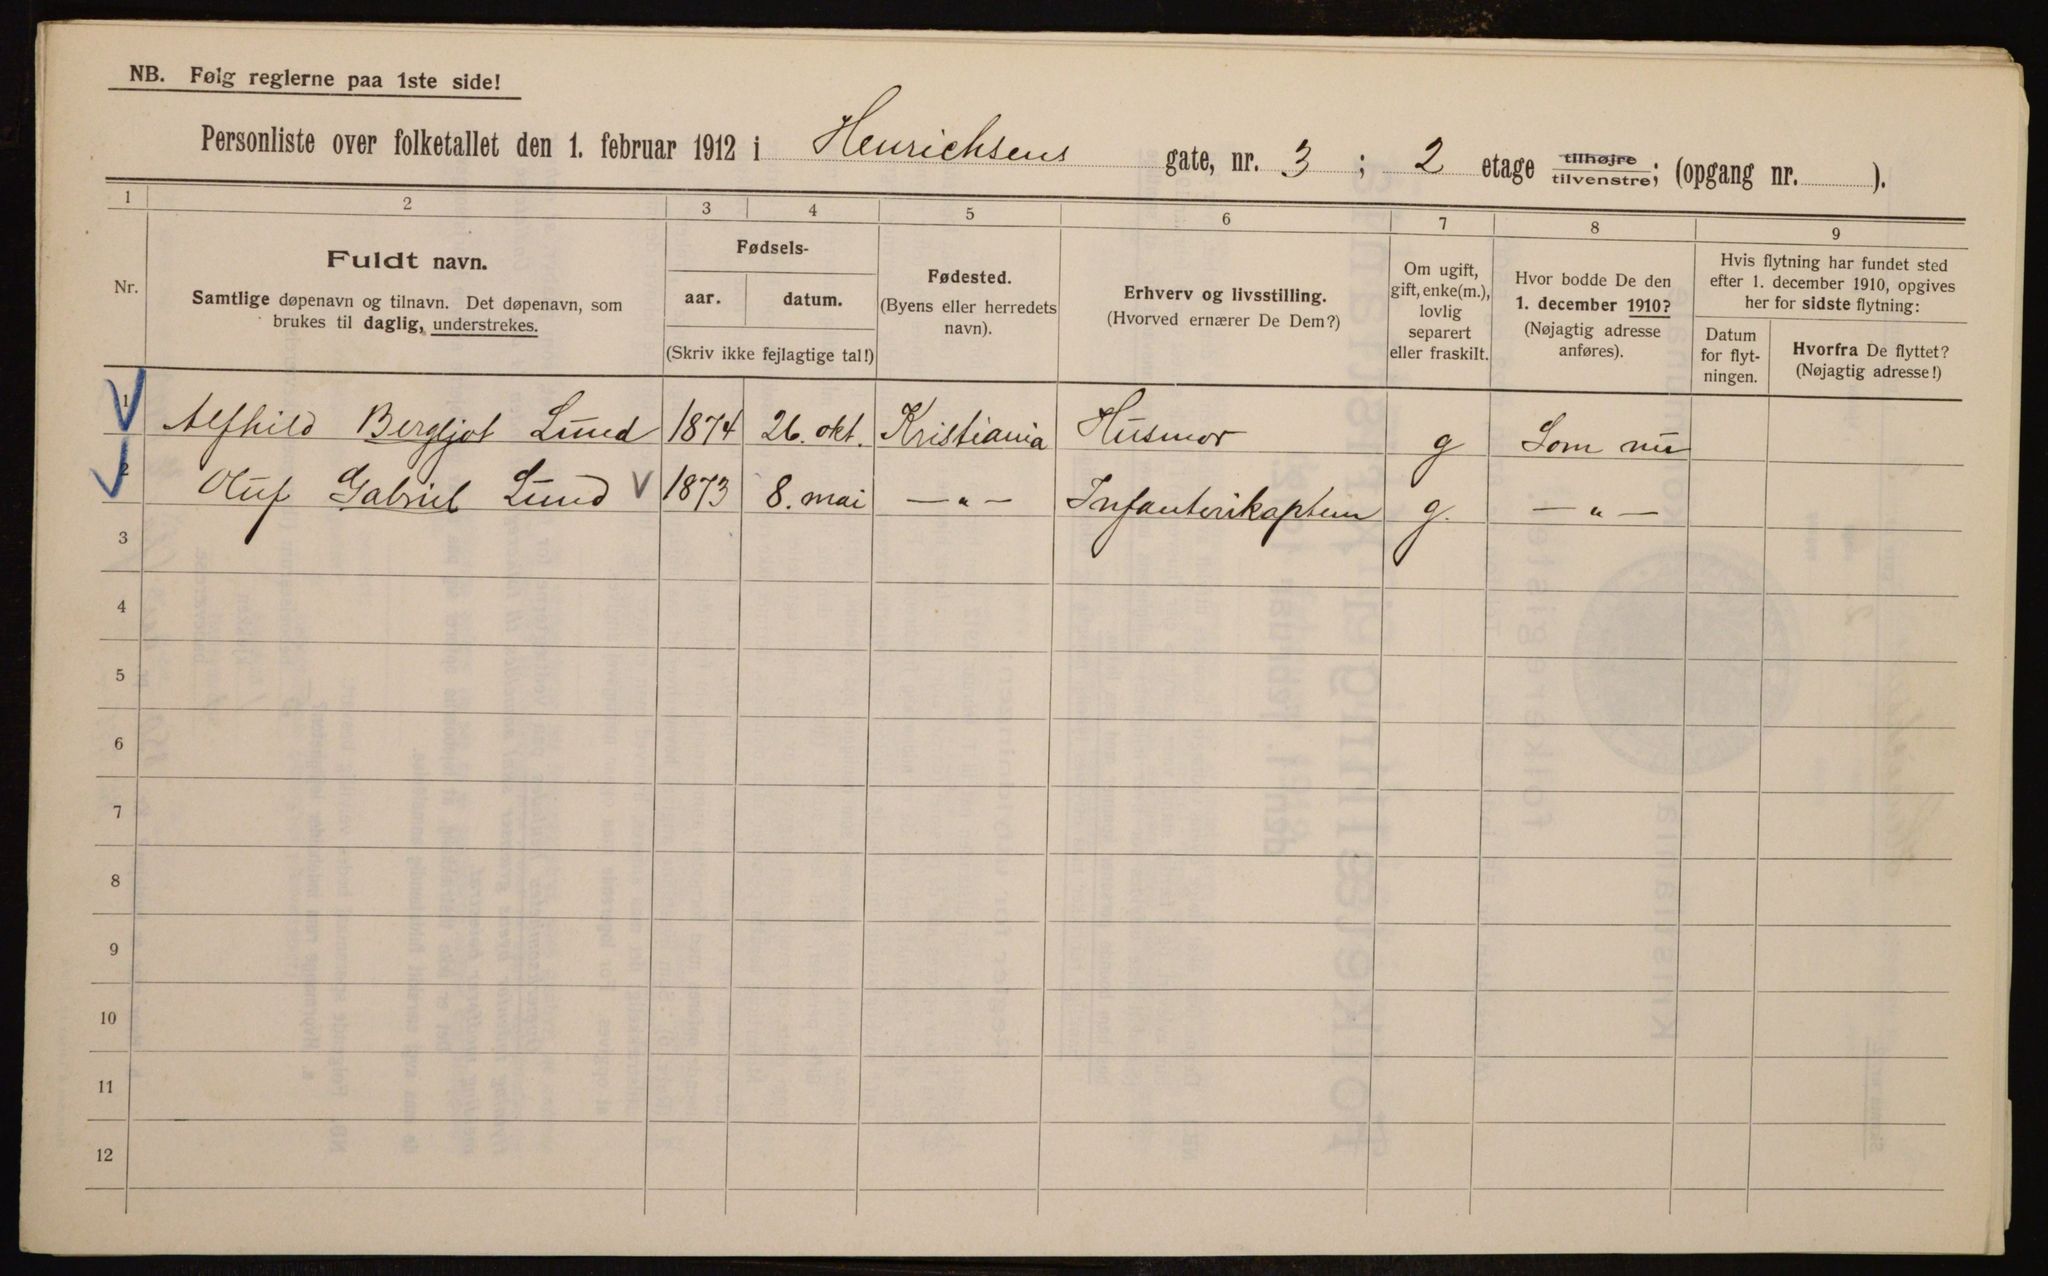 NB. Følg reglerne paa 1ste side!
Personliste over folketallet den 1. februar 1912 i Henrichsens gate, nr. 3 ; 2 etage tilhøjre tilvenstre; (opgang nr. ).
1 2 3 4 5 6 7 8 9
Nr.
Fuldt navn.
Samtlige døpenavn og tilnavn. Det døpenavn, som
brukes til daglig, understrekes.
Fødsels-
aar. datum.
(Skriv ikke fejlagtige tal!)
Fødested.
(Byens eller herredets
navn).
Erhverv og livsstilling.
(Hvorved ernærer De Dem?)
Om ugift,
gift, enke(m.),
lovlig
separert
eller fraskilt.
Hvor bodde De den
1. december 1910?
(Nøjagtig adresse
anføres).
Hvis flytning har fundet sted
efter 1. december 1910, opgives
her for sidste flytning:
Datum
for flyt-
ningen.
Hvorfra De flyttet?
(Nøjagtig adresse!)
1 Alfhild Bergljot Lund 1874 26. okt. Kristiania Husmor g Som nu
2 Oluf Gabriel Lund V 1873 8. mai — „ — Infanterikaptein g. — „ —
3
4
5
6
7
8
9
10
11
12